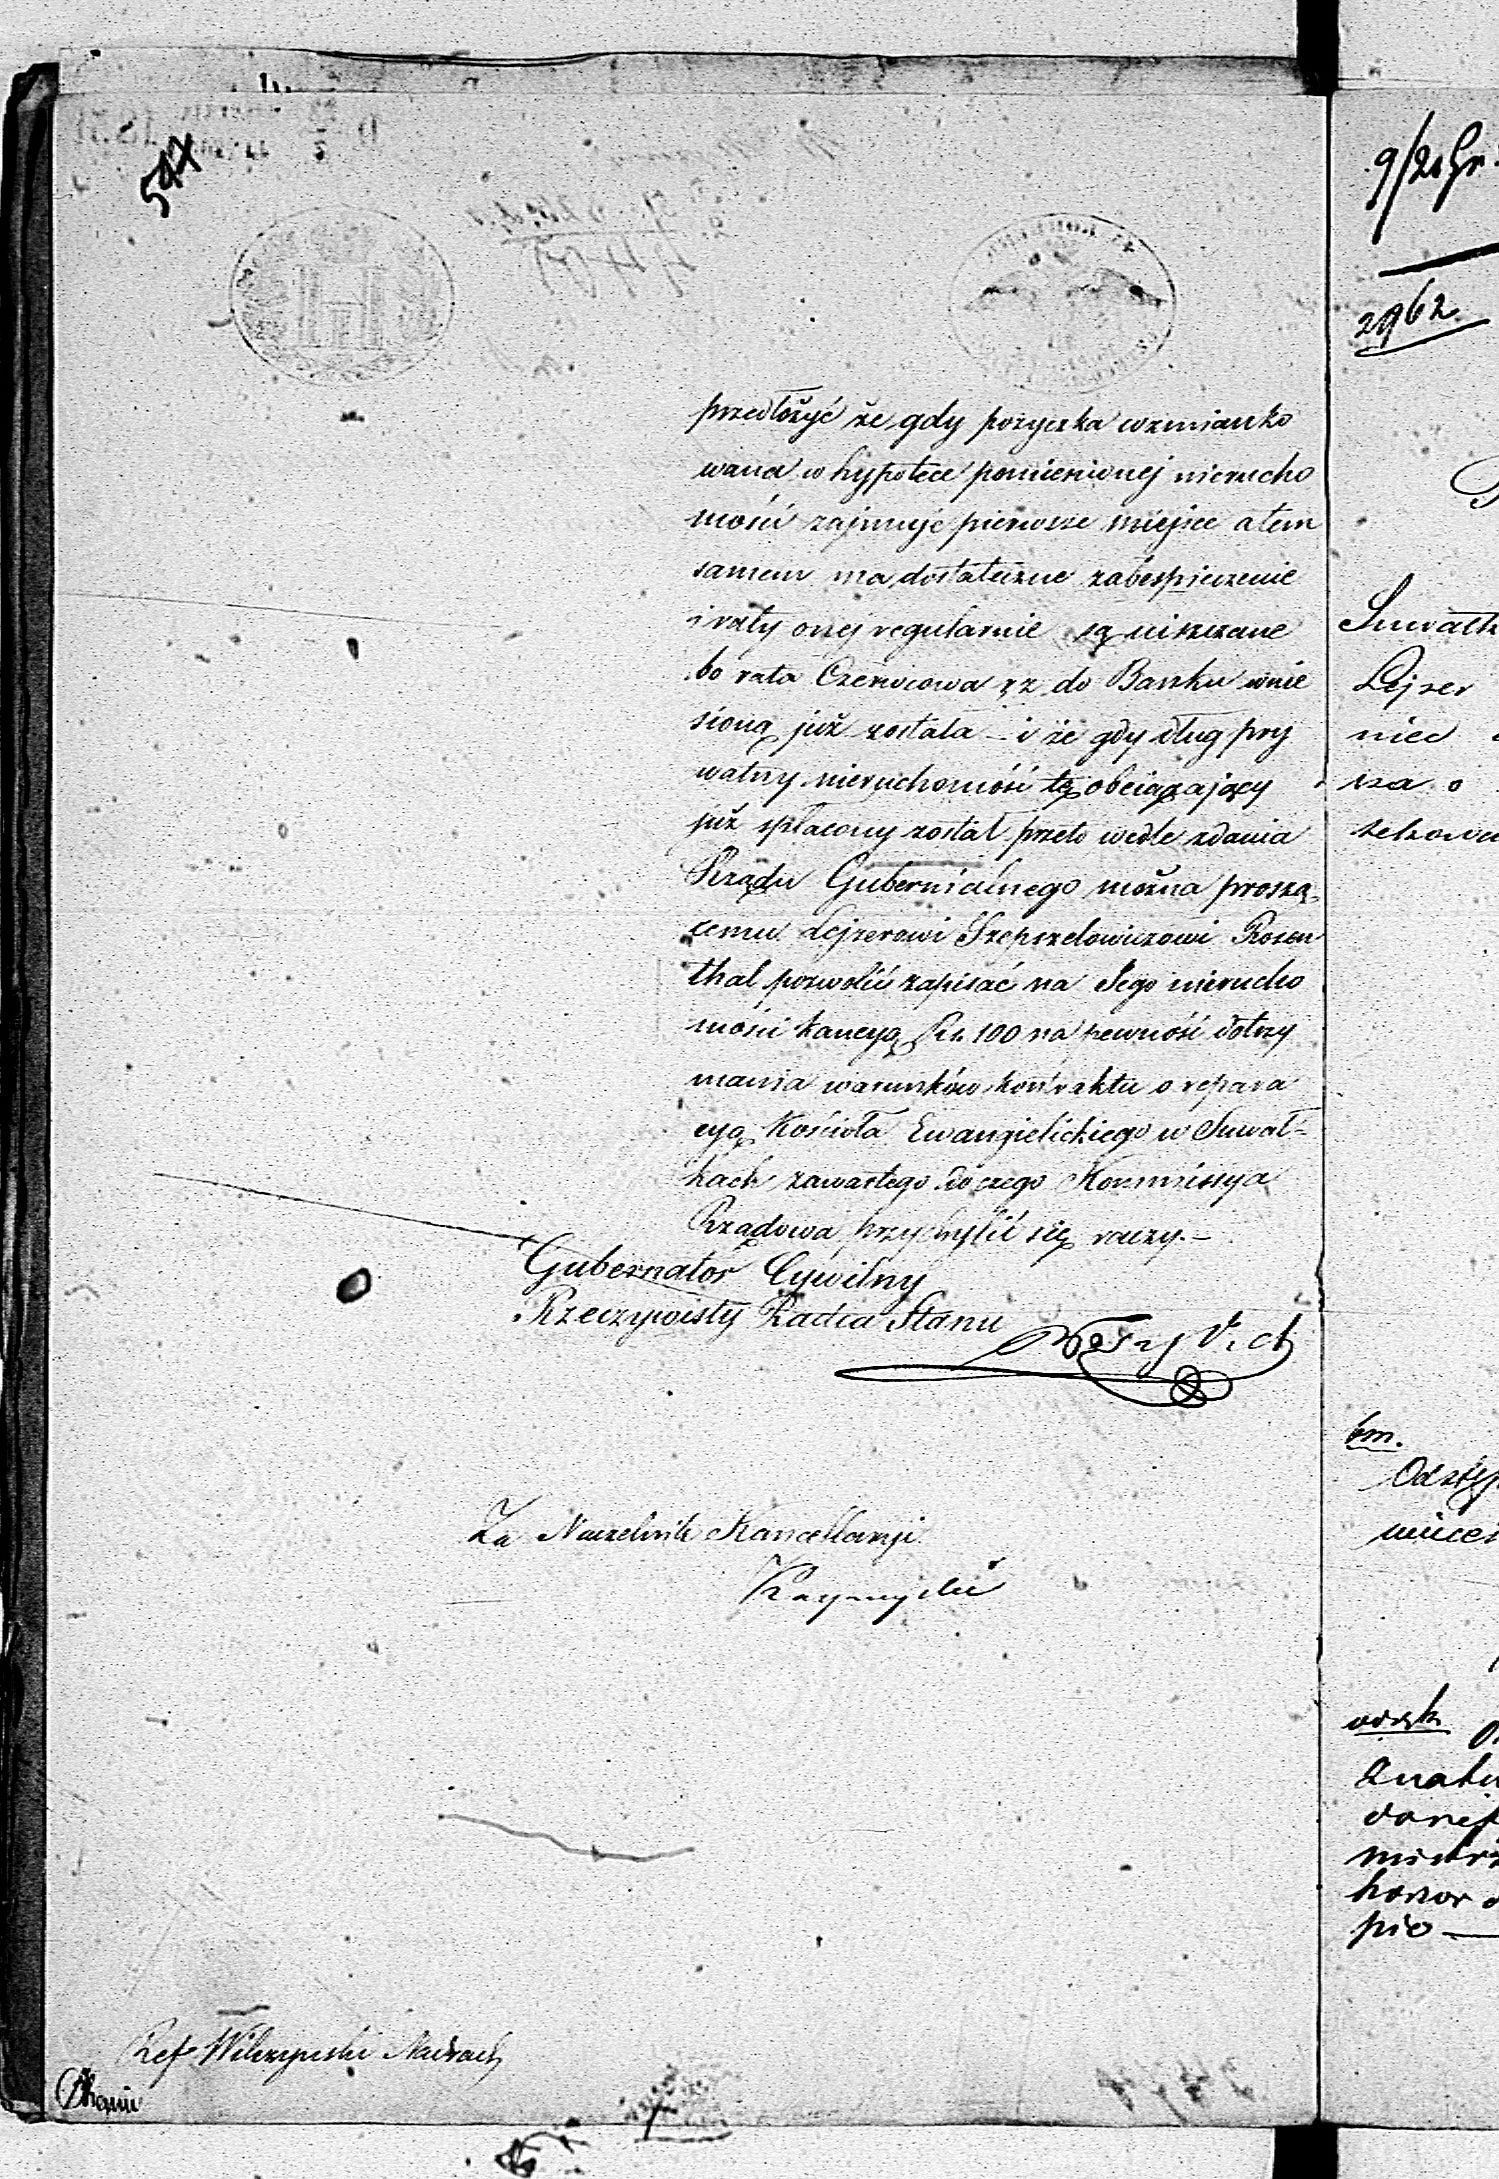 544
przedłożyć że gdy pożyczka wzmianko
wana w hypotece pomienionej nierucho
mości zajmuje pierwsze miejsce a tem
samem ma dostateczne zabespieczenie
i raty onej regularnie są uiszczane
bo rata Czerwcowa r z do Banku wnie
sioną już została – i że gdy dług pry
watny nieruchomość tę obciążający
już spłacony został przeto wedle zdania
Rządu Gubernialnego można proszą-
cemu Lejzerowi Szepszelowiczowi Rosen
thal pozwolić zapisać na Jego nierucho
mości kaucyą Rs. 100 na pewność dotrzy
mania warunków kontraktu o repara
cyą Kościoła Ewangielickiego w Suwał-
kach zawartego do czego Kommissya
Rządowa przychylić się raczy.–
Gubernator Cywilny
Rzeczywisty Radca Stanu
Za Naczelnik Kancellaryi
Ref Wilczyński
9/21 Gr
2962
Suwałk
Lejzer
niec
sza o